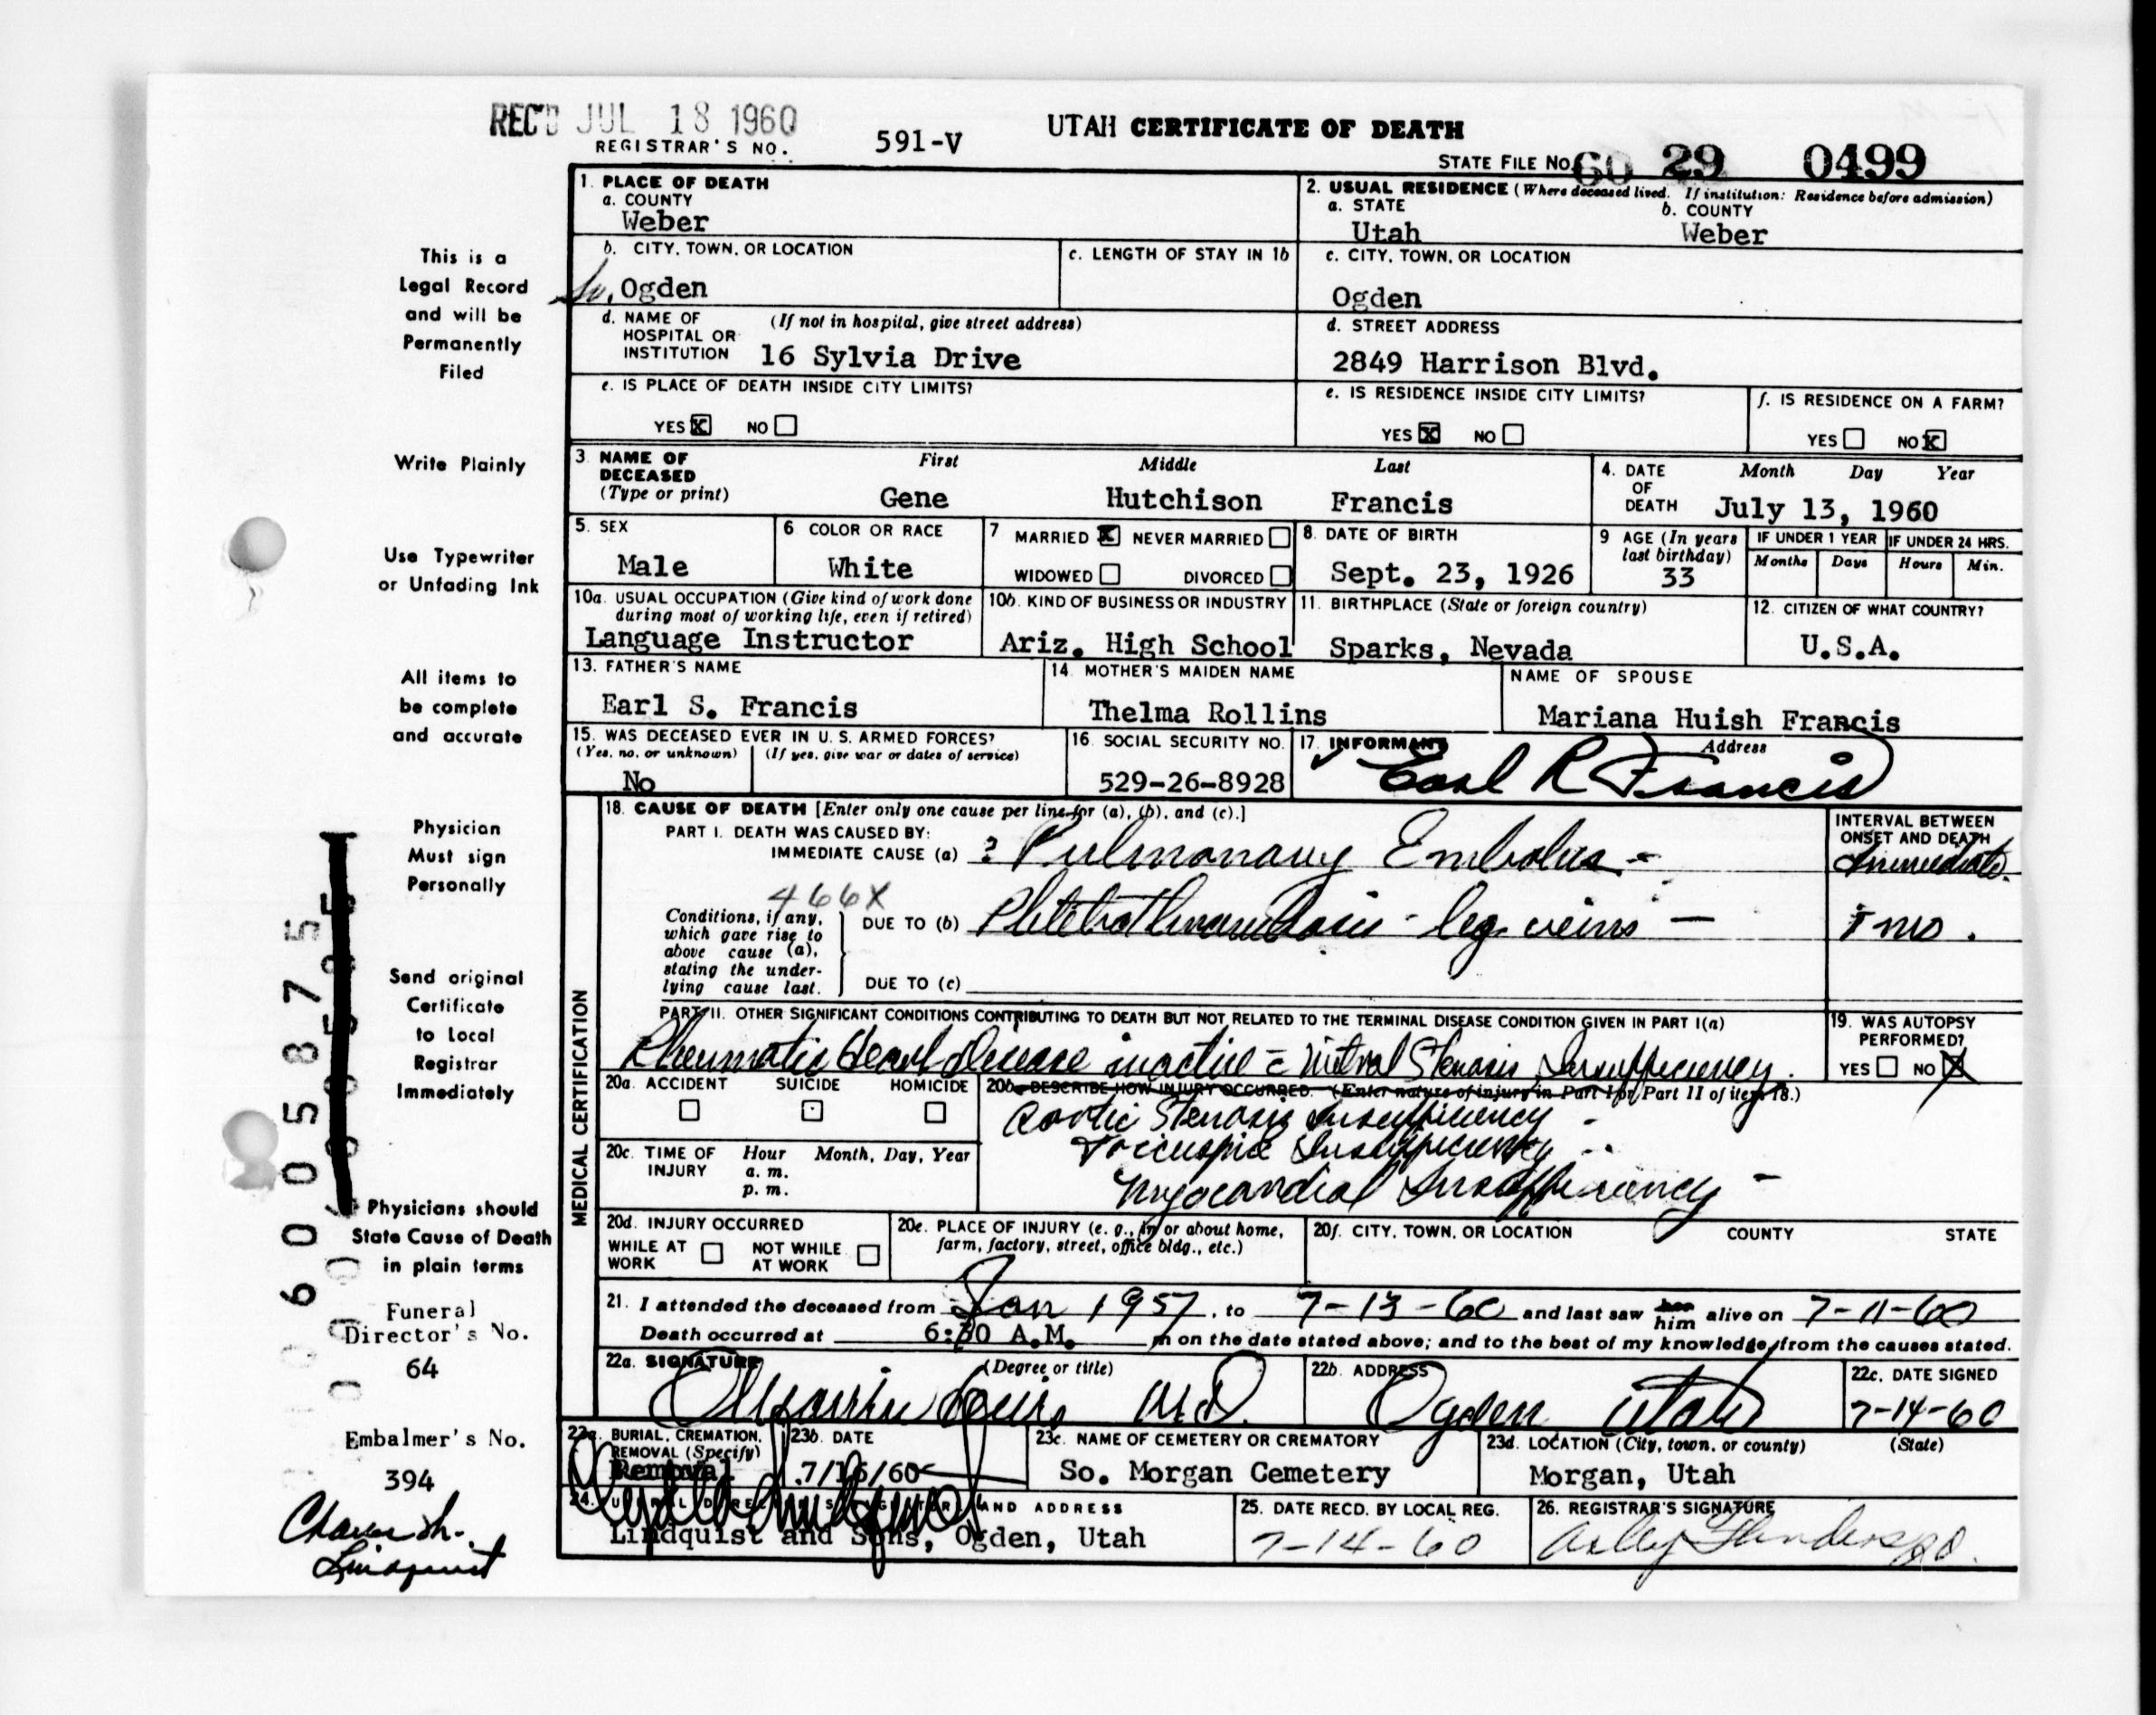 REC'D JUL 18 1960
REGISTRAR'S NO. 591-V
UTAH CERTIFICATE OF DEATH
STATE FILE NO. 60 29 0499
1. PLACE OF DEATH
a. COUNTY
Weber
2. USUAL RESIDENCE (Where deceased lived. If institution: Residence before admission)
a. STATE b. COUNTY
Utah Weber
b. CITY, TOWN, OR LOCATION
So. Ogden
c. LENGTH OF STAY IN 1b
c. CITY, TOWN, OR LOCATION
Ogden
d. NAME OF HOSPITAL OR INSTITUTION (If not in hospital, give street address)
16 Sylvia Drive
d. STREET ADDRESS
2849 Harrison Blvd.
e. IS PLACE OF DEATH INSIDE CITY LIMITS?
YES X NO
e. IS RESIDENCE INSIDE CITY LIMITS?
YES X NO
f. IS RESIDENCE ON A FARM?
YES NO X
3. NAME OF DECEASED (Type or print)
First Middle Last
Gene Hutchison Francis
4. DATE OF DEATH Month Day Year
July 13, 1960
5. SEX
Male
6 COLOR OR RACE
White
7 MARRIED X NEVER MARRIED
WIDOWED DIVORCED
8. DATE OF BIRTH
Sept. 23, 1926
9 AGE (In years last birthday)
33
IF UNDER 1 YEAR IF UNDER 24 HRS.
Months Days Hours Min.
10a. USUAL OCCUPATION (Give kind of work done during most of working life, even if retired)
Language Instructor
10b. KIND OF BUSINESS OR INDUSTRY
Ariz. High School
11. BIRTHPLACE (State or foreign country)
Sparks, Nevada
12. CITIZEN OF WHAT COUNTRY?
U.S.A.
13. FATHER'S NAME
Earl S. Francis
14. MOTHER'S MAIDEN NAME
Thelma Rollins
NAME OF SPOUSE
Mariana Huish Francis
15. WAS DECEASED EVER IN U. S. ARMED FORCES?
(Yes, no, or unknown) (If yes, give war or dates of service)
No
16. SOCIAL SECURITY NO.
529-26-8928
17. INFORMANT Address
Earl R Francis
MEDICAL CERTIFICATION
18. CAUSE OF DEATH [Enter only one cause per line for (a), (b), and (c).]
PART I. DEATH WAS CAUSED BY:
IMMEDIATE CAUSE (a) ? Pulmonary Embolus -
INTERVAL BETWEEN ONSET AND DEATH
Immediate.
466X
Conditions, if any, which gave rise to above cause (a), stating the underlying cause last.
DUE TO (b) Phlebothrombosis - leg veins -
1 mo.
DUE TO (c)
PART II. OTHER SIGNIFICANT CONDITIONS CONTRIBUTING TO DEATH BUT NOT RELATED TO THE TERMINAL DISEASE CONDITION GIVEN IN PART I(a)
Rheumatic Heart disease inactive = Mitral Stenosis Insufficiency.
19. WAS AUTOPSY PERFORMED?
YES NO X
20a. ACCIDENT SUICIDE HOMICIDE
20b. DESCRIBE HOW INJURY OCCURRED. (Enter nature of injury in Part I or Part II of item 18.)
Aortic Stenosis Insufficiency -
Tricuspid Insufficiency -
Myocardial Insufficiency -
20c. TIME OF INJURY Hour Month, Day, Year
a. m.
p. m.
20d. INJURY OCCURRED
WHILE AT WORK NOT WHILE AT WORK
20e. PLACE OF INJURY (e. g., in or about home, farm, factory, street, office bldg., etc.)
20f. CITY, TOWN, OR LOCATION COUNTY STATE
21. I attended the deceased from Jan 1957, to 7-13-60 and last saw her him alive on 7-11-60
Death occurred at 6:30 A.M. m on the date stated above; and to the best of my knowledge, from the causes stated.
22a. SIGNATURE (Degree or title)
M.D.
22b. ADDRESS
Ogden Utah
22c. DATE SIGNED
7-14-60
23a. BURIAL, CREMATION, REMOVAL (Specify)
Removal
23b. DATE
7/16/60
23c. NAME OF CEMETERY OR CREMATORY
So. Morgan Cemetery
23d. LOCATION (City, town, or county) (State)
Morgan, Utah
24. AND ADDRESS
Lindquist and Sons, Ogden, Utah
25. DATE RECD. BY LOCAL REG.
7-14-60
26. REGISTRAR'S SIGNATURE
This is a
Legal Record
and will be
Permanently
Filed
Write Plainly
Use Typewriter
or Unfading Ink
All items to
be complete
and accurate
Physician
Must sign
Personally
Send original
Certificate
to Local
Registrar
Immediately
Physicians should
State Cause of Death
in plain terms
Funeral
Director's No.
64
Embalmer's No.
394
Lindquist
6005875